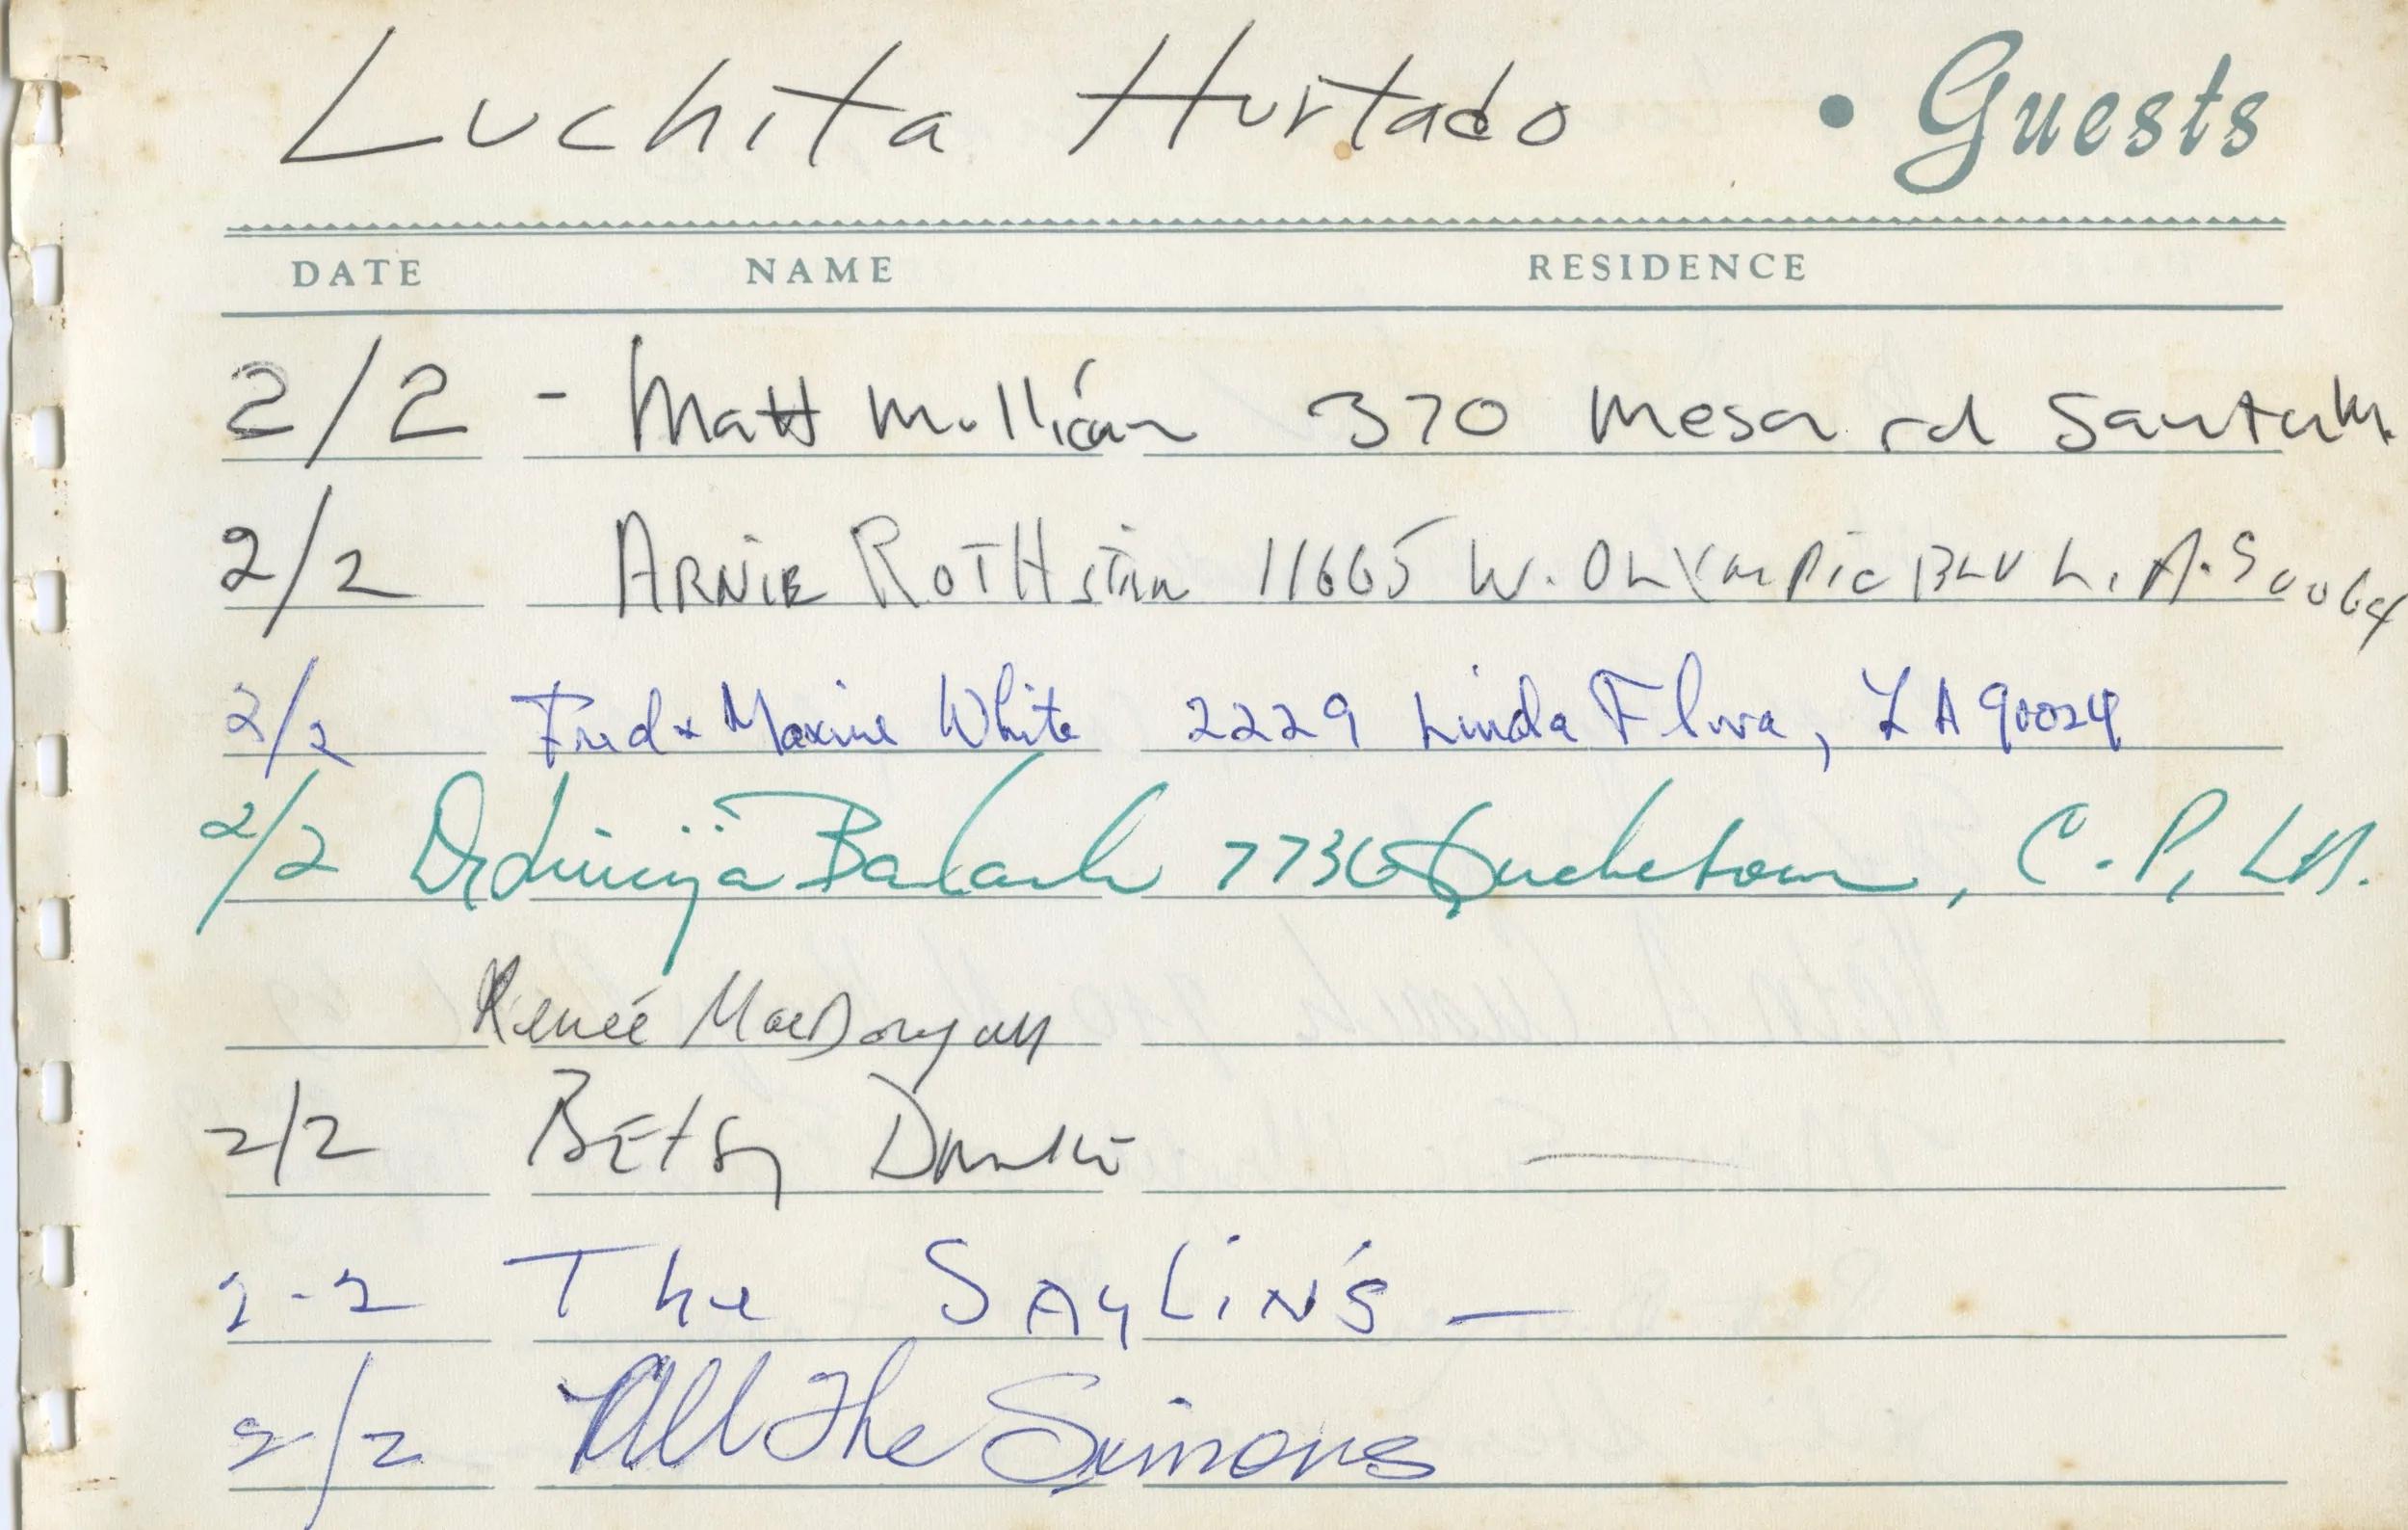 Luchita Hurtado • Guests
DATE NAME RESIDENCE
2/2 - Matt Mullican 370 Mesa rd Santa M.
2/2 ARNIE ROTHstein 11665 W. OLYmpic BLV L.A. 90064
2/2 Fred & Maxine White 2229 Linda Flora, LA 90024
2/2 7736 C.P, LA.
Renée MacDougall
2/2 BEtsy
2-2 The SAyLiN's —
2/2 All The Simons